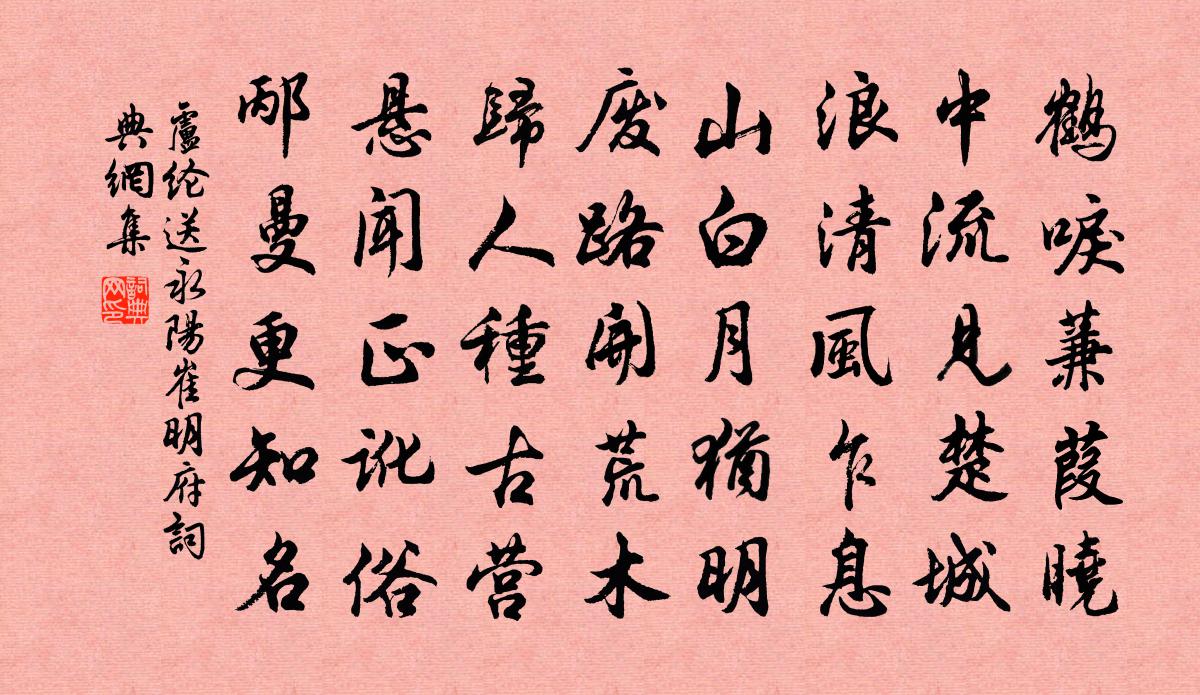 鶴唳蒹葭曉
中流見楚城
浪清風乍息
山白月猶明
廢路開荒木
歸人種古营
悬闻正訛俗
邴曼更知名
盧纶送永陽崔明府詞
典網集
詞典网印